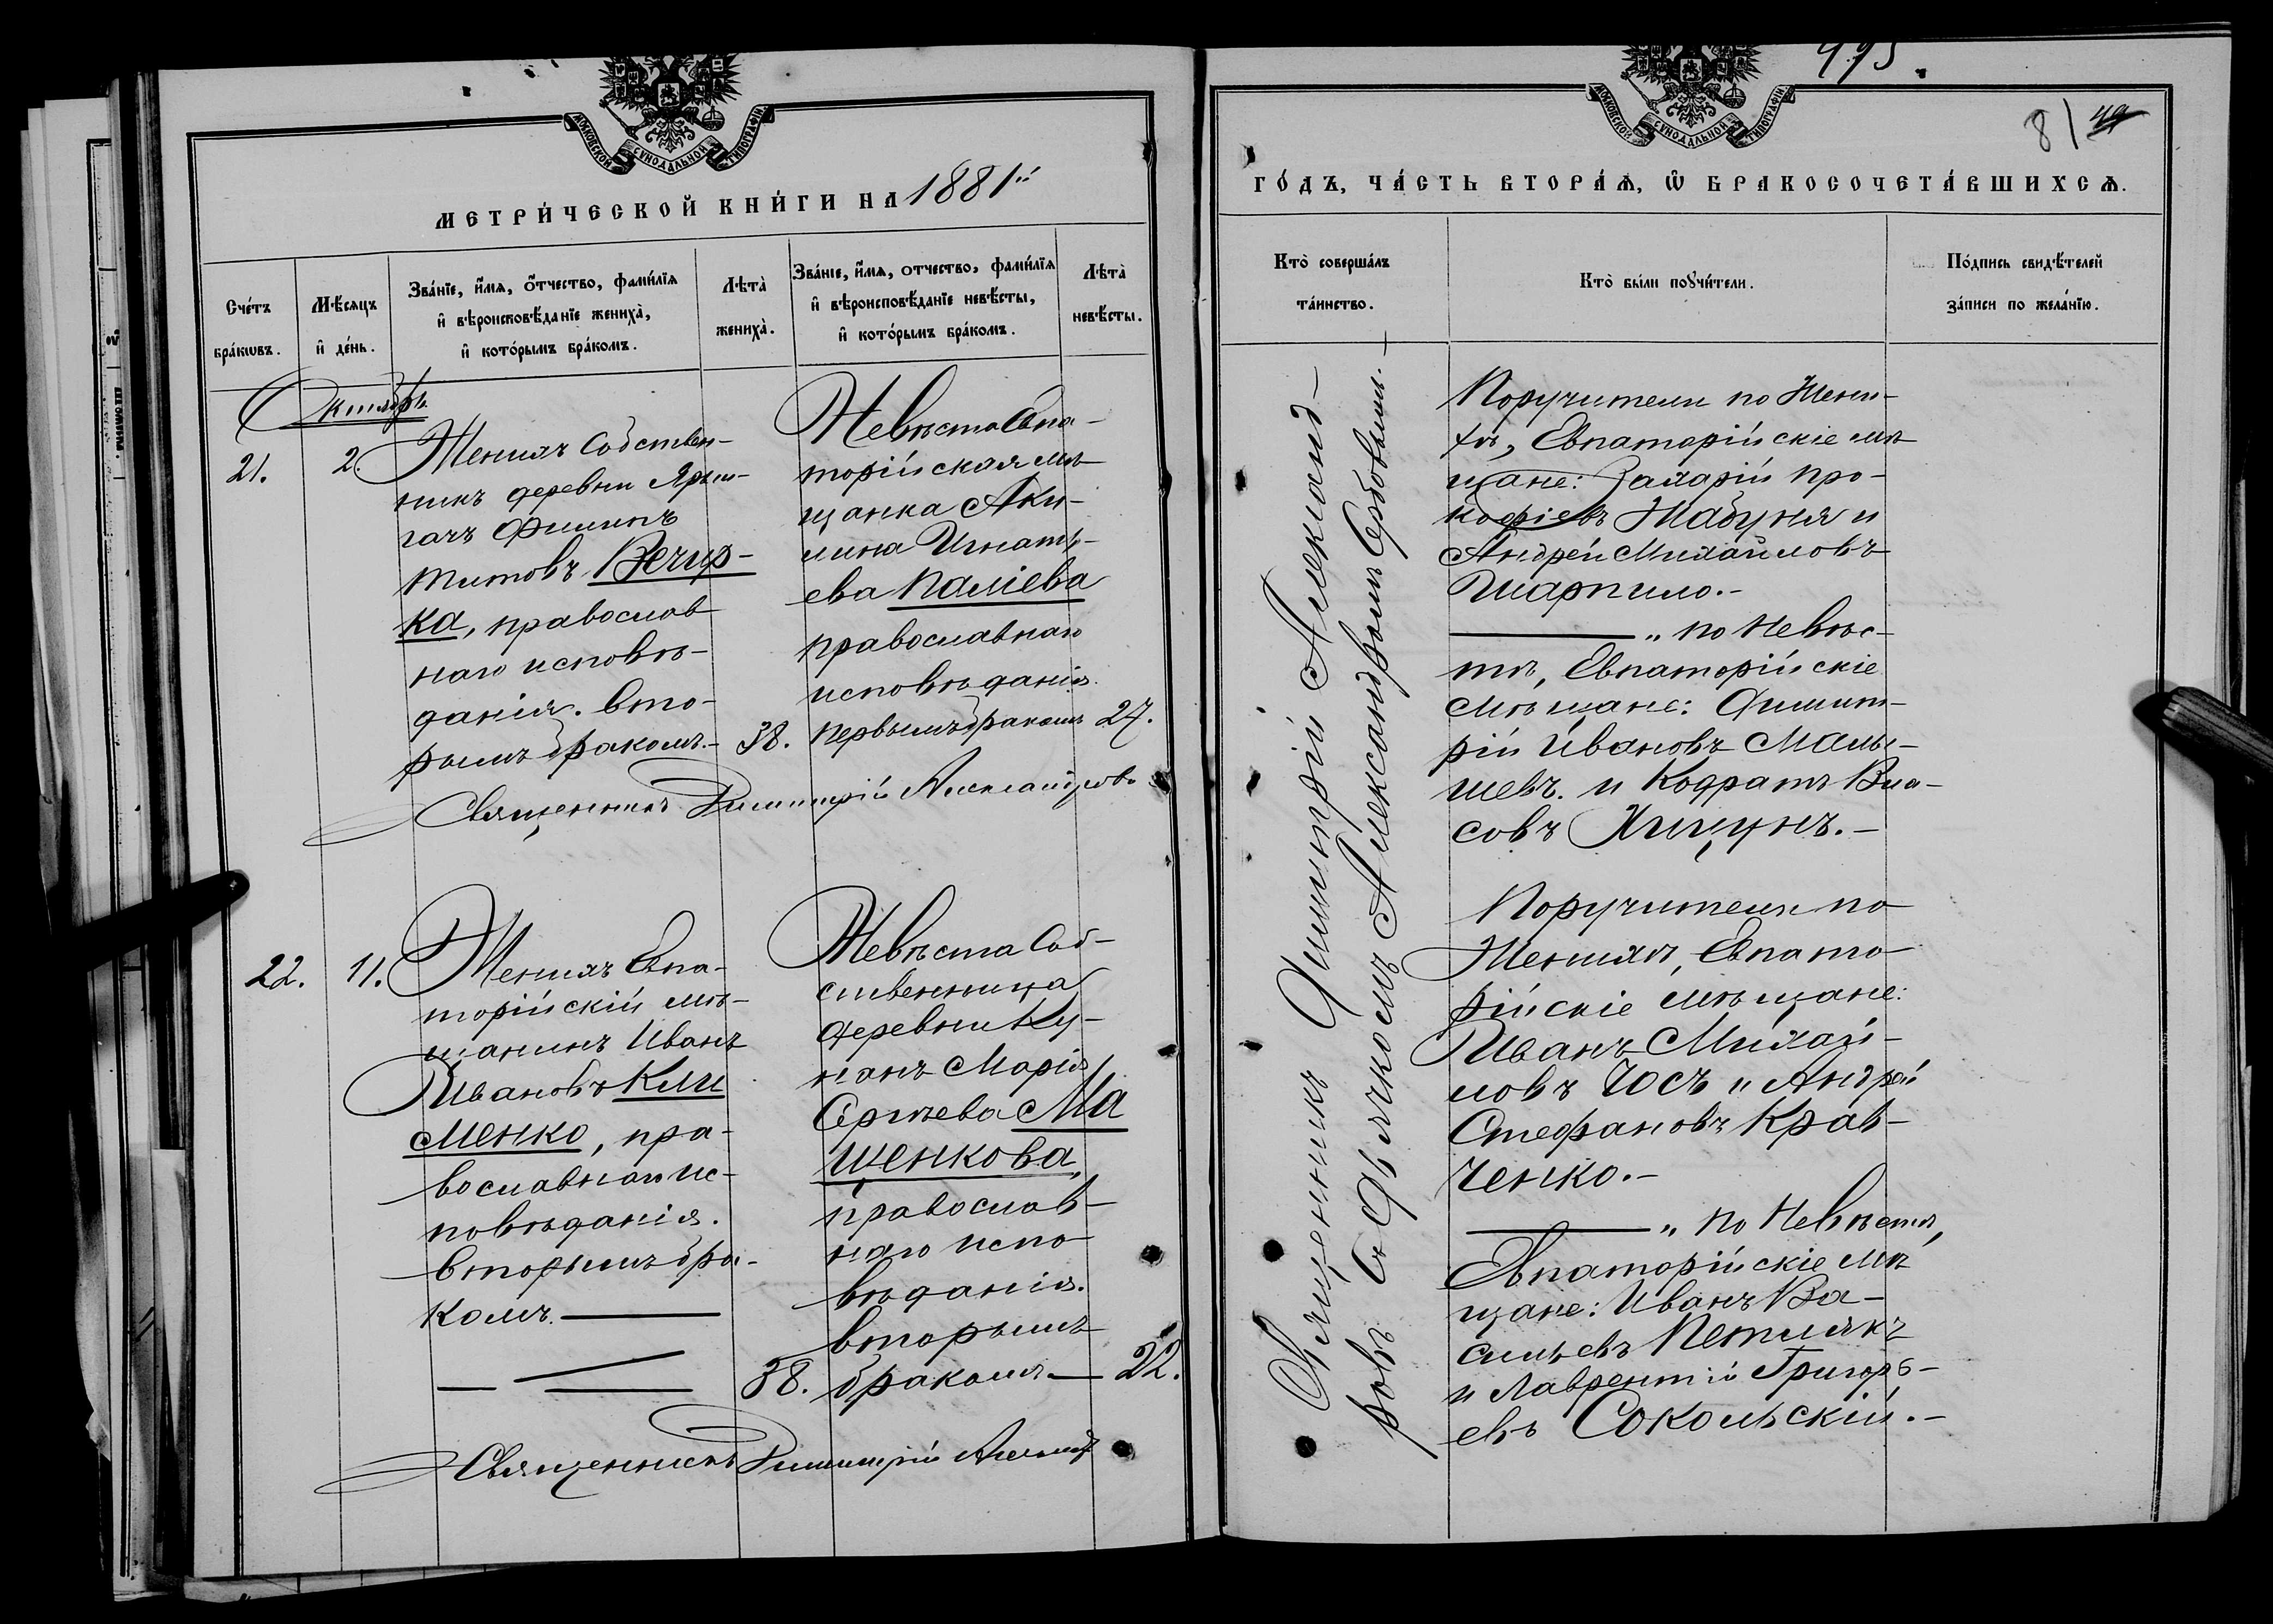 МОСКОВСКОЙ СѴНОДАЛЬНОЙ ТИПОГРАФІИ
МЕТРИ́ЧЕСКОЙ КНИ́ГИ НА 1881й
Сче́тъ бра́кѡвъ.
Мѣ́сяцъ и҆ де́нь.
Зва́нїе, и҆́мѧ, ѻ҆́тчество, фами́лїѧ
и҆ вѣроисповѣ́данїе жениха̀,
и҆ кото́рымъ бра́комъ.
Лѣта̀ жениха̀.
Зва́нїе, и҆́мѧ, отчество, фами́лїѧ
и҆ вѣроисповѣ́данїе невѣ́сты,
и҆ кото́рымъ бра́комъ.
Лѣта̀ невѣ́сты.
Октябрь
21.
2.
Женихъ Собствен-
никъ деревни Ярыл-
гачъ Филипъ
Титовъ Вечир-
ка, православ
наго исповѣ-
данія. вто-
рымъ бракомъ.-
38.
Невѣста Евпа-
торійская мѣ-
щанка Аки-
лина Игнать-
ева Паліева
православнаго
исповѣданія.
первымъ бракомъ
27.
Священникъ Димитрій Александровъ
22.
11.
Женихъ Евпа-
торійскій мѣ-
щанинъ Иванъ
Ивановъ Кли
менко, пра-
вославнаго ис-
повѣданія.
вторымъ бра-
комъ.
38.
Невѣста Соб-
ственница
деревни Ку-
нанъ Марія
Сергѣева Ма
щенкова,
православ-
наго испо-
вѣданія.
вторымъ
бракомъ
22.
Священникъ Димитрій Александ
495.
8/ 49
МОСКОВСКОЙ СѴНОДАЛЬНОЙ ТИПОГРАФІИ
ГО́ДЪ, ЧА́СТЬ ВТОРА́Ѧ, Ѡ҆ БРАКОСОЧЕТА́ВШИХСѦ.
Кто̀ соверша́лъ
та́инство.
Кто̀ бы́ли поꙋчи́тели.
По́дпись свидѣ́телей
за́писи по жела́нїю.
Священникъ Димитрій Александ-
ровъ съ Дьячкомъ Александромъ Сербовымъ.-
Поручители по Жени-
хѣ, Евпаторійскіе мѣ
щане: Захарій Про-
кофіевъ Жабуня и
Андрей Михайловъ
Шарпило.-
" по Невѣс-
тѣ, Евпаторійскіе
Мѣщане: Димит-
рій Ивановъ Малы-
шевъ. и Кодратъ Вла-
совъ Хищунъ.-
Поручители по
Женихѣ, Евпато-
рійскіе мѣщане:
Иванъ Михай-
ловъ Юсъ и Андрей
Стефановъ Крав-
ченко.-
" по Невѣстѣ,
Евпаторійскіе мѣ
щане: Иванъ Ва-
сильевъ Петлякъ
и Лаврентій Григорь-
евъ Сокольскій.-